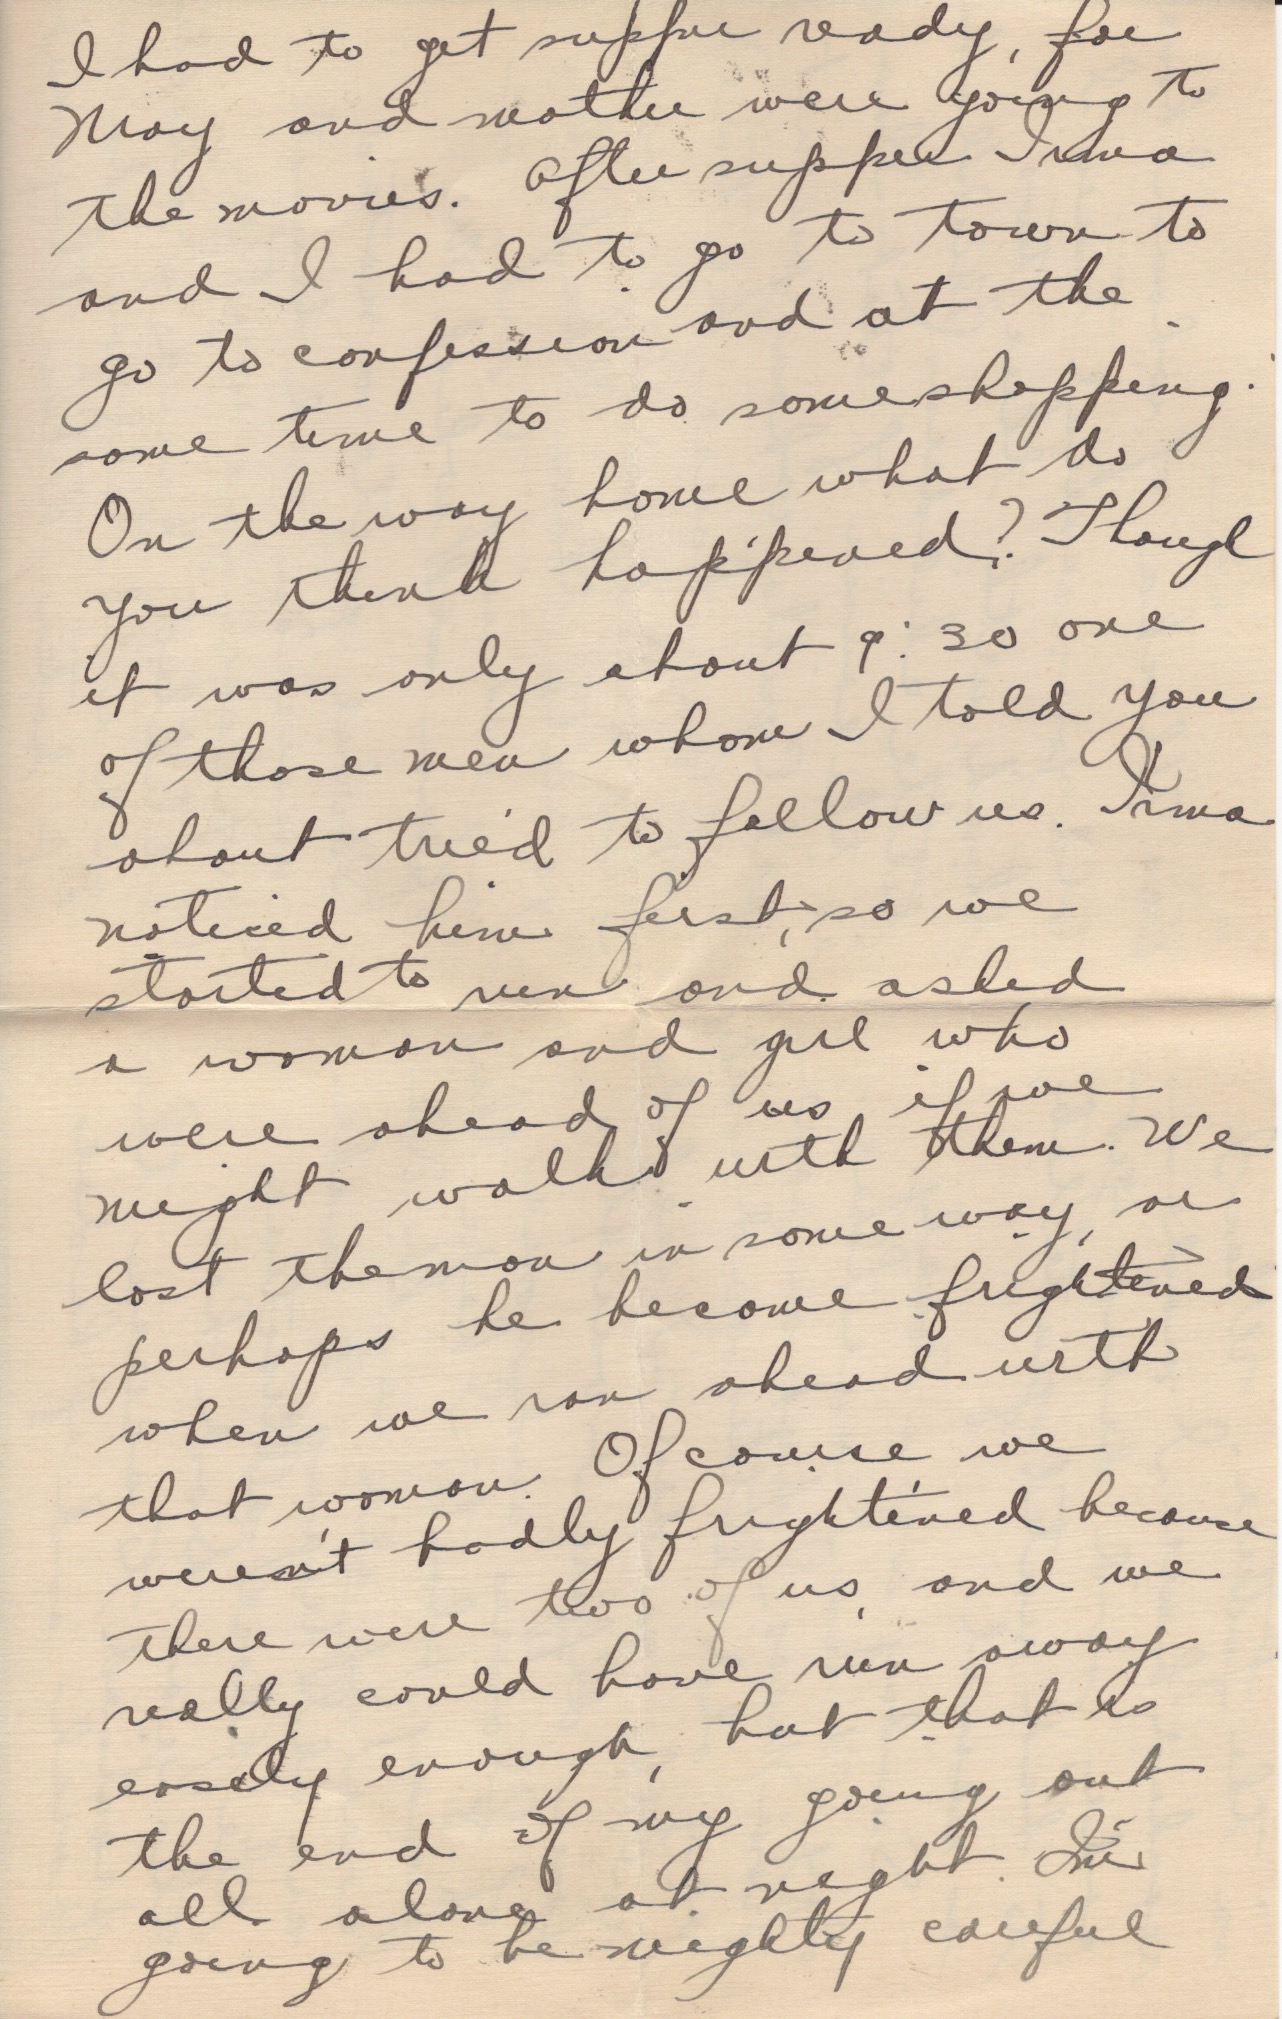 I had to get supper ready, for
May and mother were going to
the movies. After supper Irma
and I had to go to town to
go to confession and at the
same time to do some shopping.
On the way home what do
you think happened? Though
it was only about 9:30 one
of those men whom I told you
about tried to follow us. Irma
noticed him first, so we
started to run and asked
a woman and girl who
were ahead of us if we
might walk with them. We
lost the man in some way, or
perhaps he became frightened
when we ran ahead with
that woman. Of course we
weren't badly frightened because
there were two of us, and we
really could have run away
easily enough, but that is
the end of my going out
all alone at night. I'm
going to be mighty careful